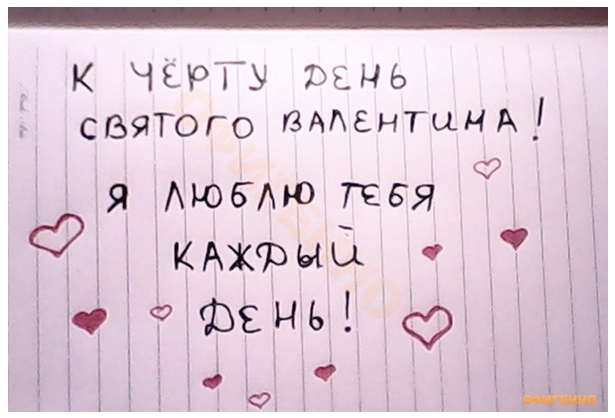 К ЧЁРТУ ДЕНЬ
СВЯТОГО ВАЛЕНТИНА!
Я ЛЮБЛЮ ТЕБЯ
КАЖДЫЙ
ДЕНЬ!
ОФИГЕННО